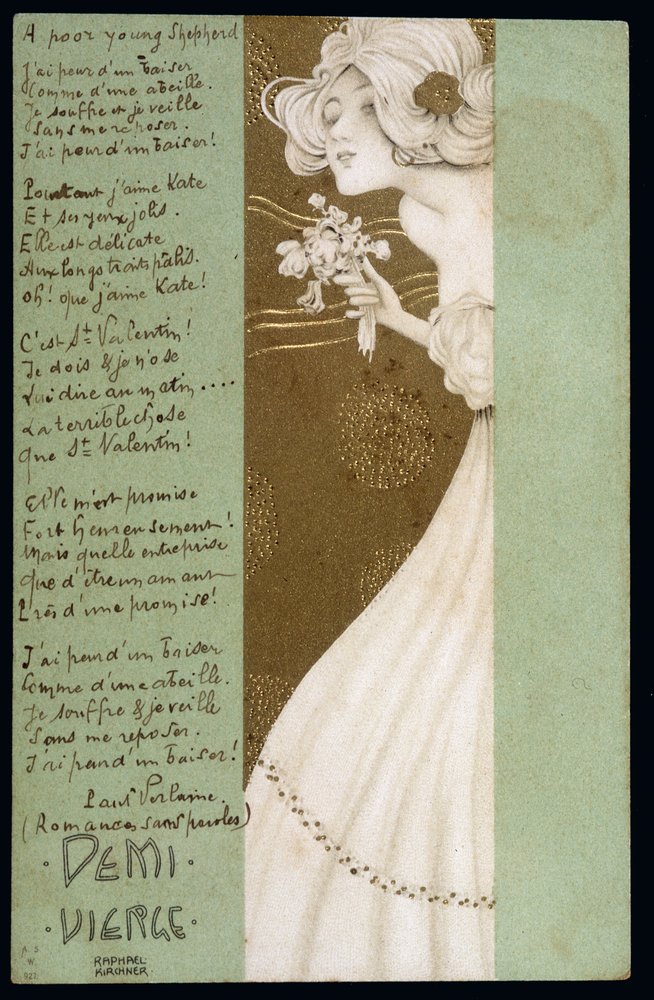 A poor young Shepherd
J'ai peur d'un baiser
Comme d'une abeille.
Je souffre et je veille
Sans me reposer.
J'ai peur d'un baiser!
Pourtant j'aime Kate
Et ses yeux jolis.
Elle est délicate
Aux longs traits pâlis.
Oh! que j'aime Kate!
C'est St Valentin!
Je dois & je n'ose
Lui dire au matin....
La terrible chose
Que St Valentin!
Elle m'est promise
Fort heureusement!
Mais quelle entreprise
Que d'être un amant
Près d'une promise!
J'ai peur d'un baiser
Comme d'une abeille.
Je souffre & je veille
Sans me reposer.
J'ai peur d'un baiser!
Paul Verlaine.
(Romances sans paroles)
·DEMI·
·VIERGE·
RAPHAEL
KIRCHNER·
A. S.
W.
927